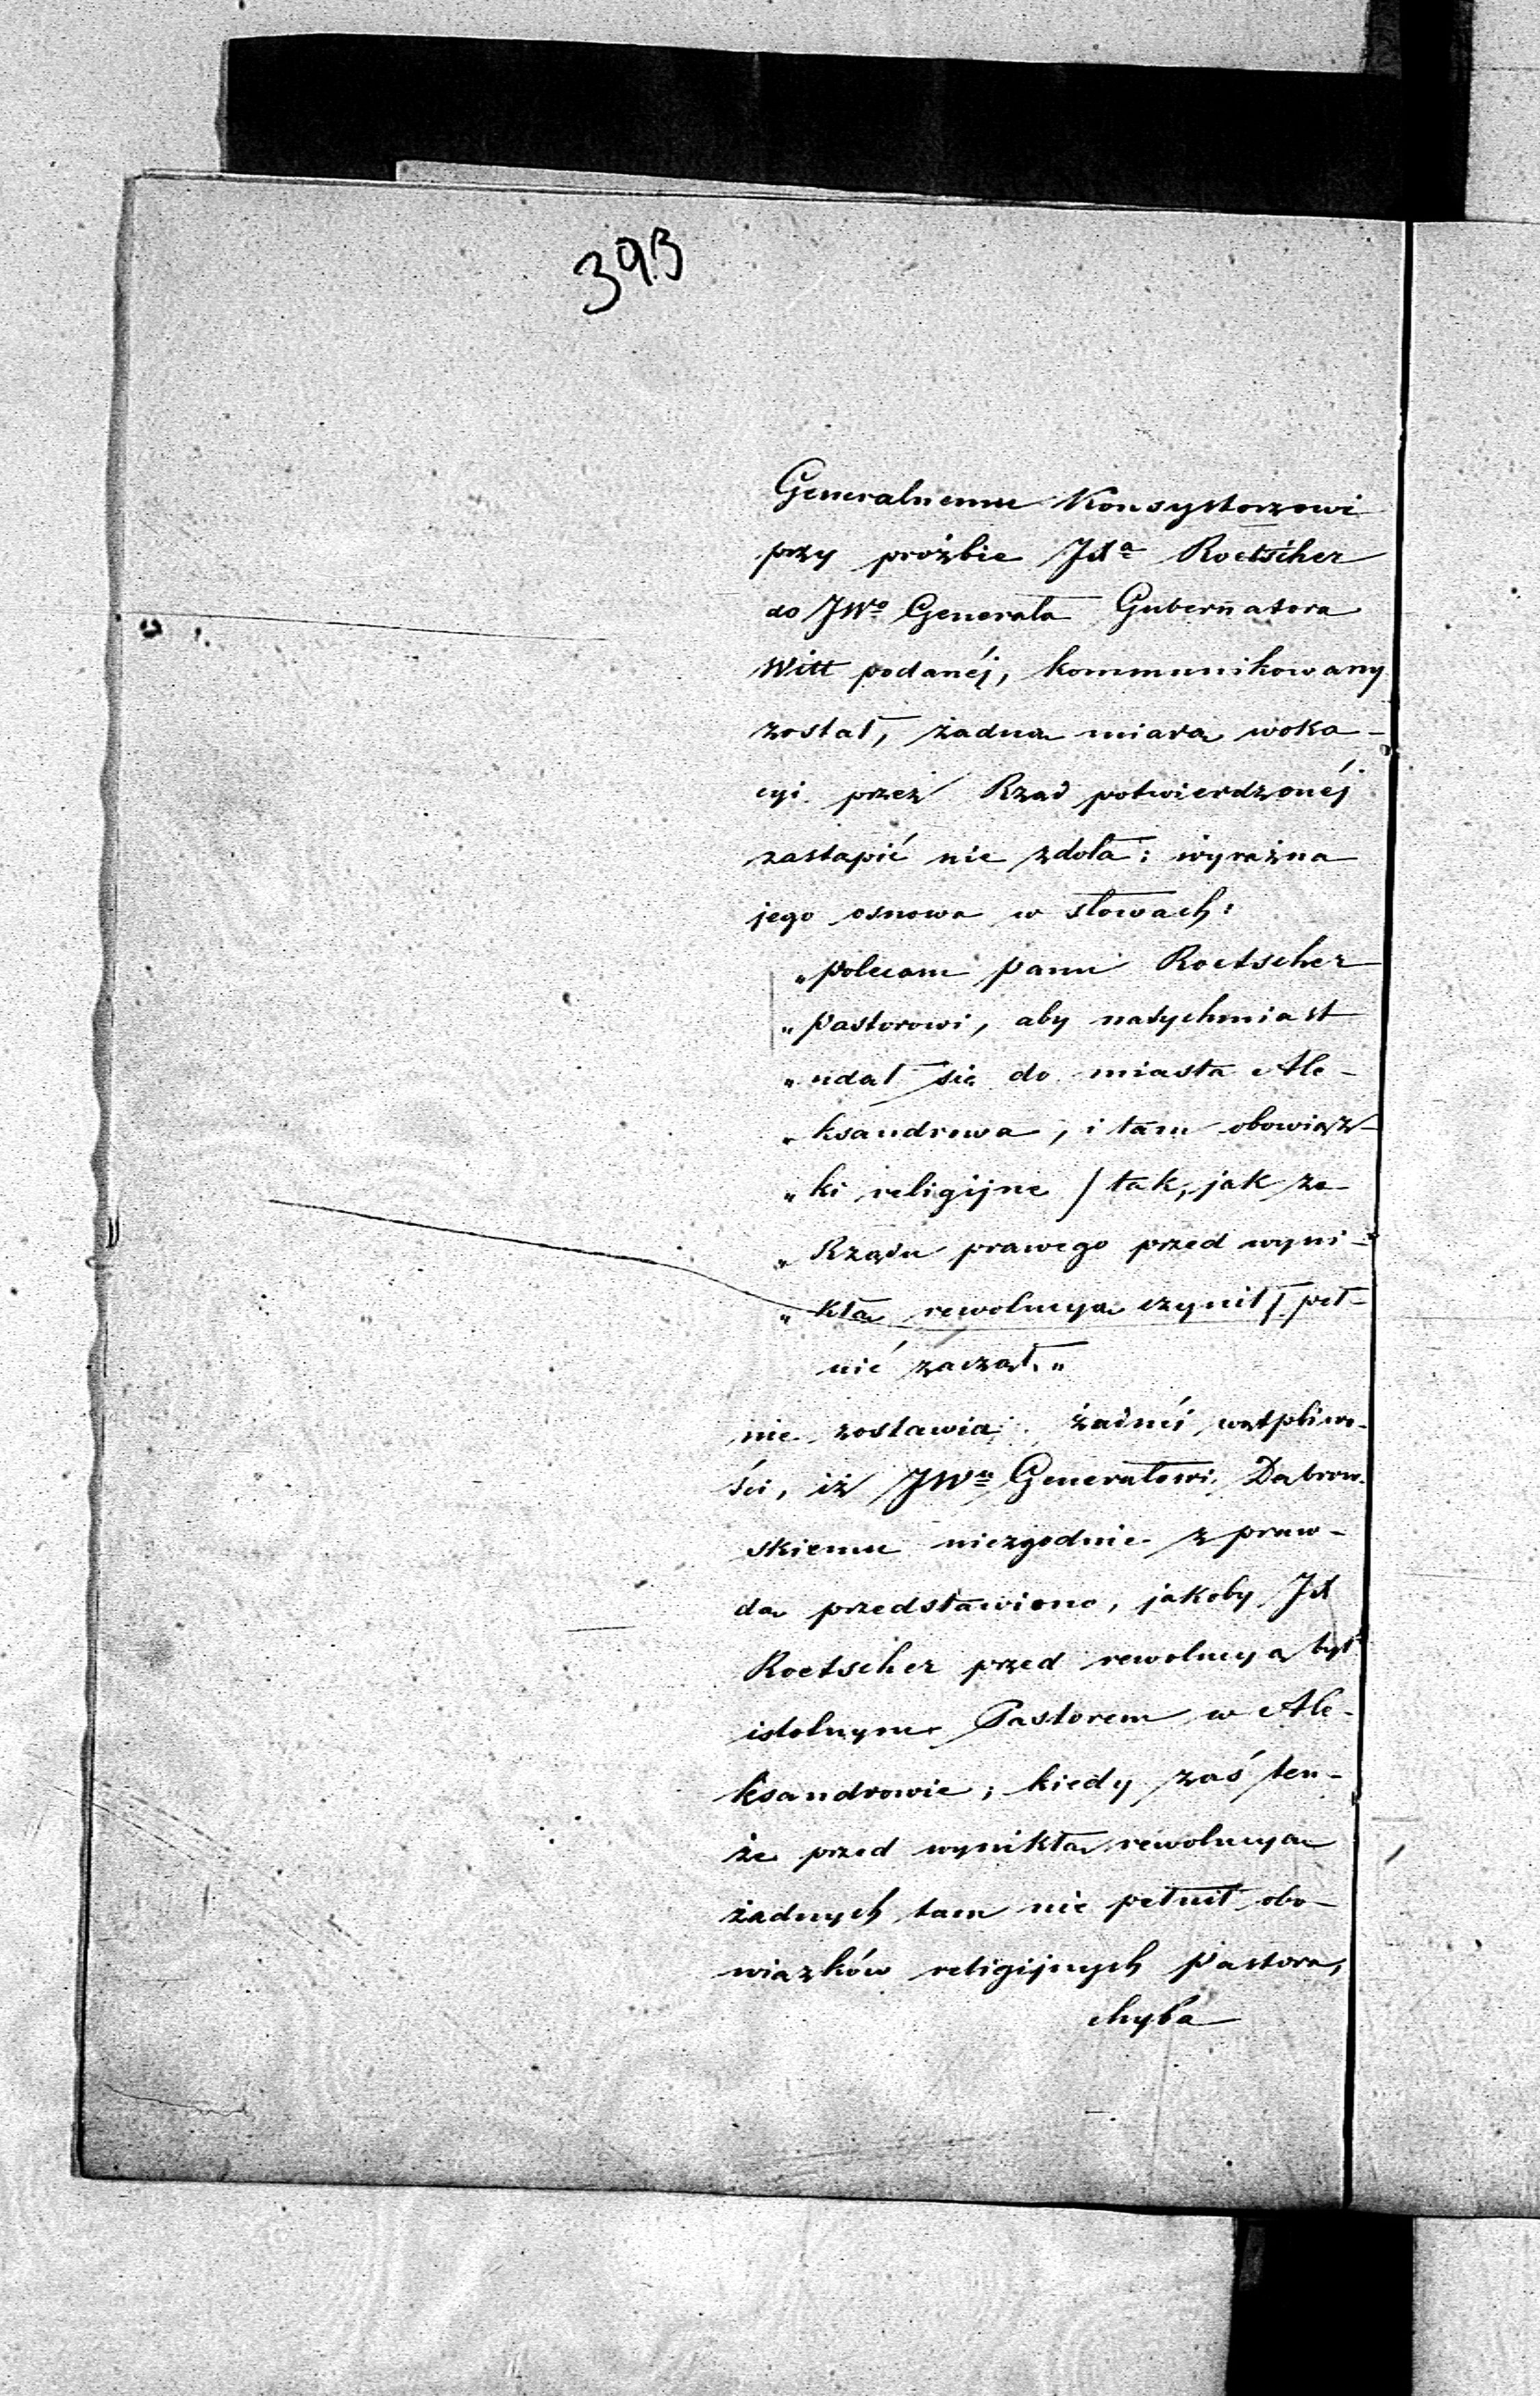 393
Generalnemu Konsystorzowi
przy prośbie JXa Roetscher
do JWo Generała Gubernatora
Witt podanéj, kommunikowany
został, żadną miarą woka-
cyi przez Rząd potwierdzonéj
zastąpić nie zdoła; wyraźna
jego osnowa w słowach:
„polecam Panu Roetscher
„Pastorowi, aby natychmiast
„udał się do miasta Ale-
„ksandrowa, i tam obowiąz-
„ki religijne / tak, jak za
„Rządu prawego przed wyni-
„kłą rewolucyą czynił / peł-
nić zaczął.„
nie zostawia żadnéj wątpliwo-
ści, iż JWu Generałowi Dąbrow-
skiemu niezgodnie z praw-
dą przedstawiono, jakoby JX
Roetscher przed rewolucyą był
istotnym Pastorem w Ale-
ksandrowie; kiedy zaś ten-
że przed wynikłą rewolucyą
żadnych tam nie pełnił obo-
wiązków religijnych Pastora,
chyba